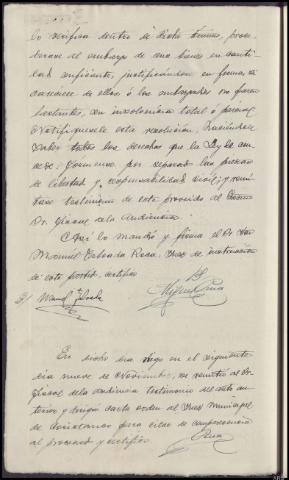 lo verifica dentro de dicho término, proce-
derase al embargo de sus bienes en canti-
dad suficiente, justificándose en forma, si
careciere de ellos ó los embargados no fueren
bastantes, su insolvencia total ó parcial.
Notifíquesele esta resolución, haciéndole
saber los derechos que la Ley le con-
cede; fórmense por separado las piezas
de libertad y responsabilidad civil; y remí-
tase testimonio de este proveído al
Sr. Fiscal de la Audiencia.
Así lo mandó y firma el Sr. Don
Manuel Roca, Juez de instrucción
de este partido, certifico
Manuel
Miguel
En dicho dia digo en el siguiente
dia nueve de Noviembre, se remitió al Sr.
Fiscal de la Audiencia testimonio del auto an-
terior y dirigió carta orden al Juez municipal
de para citar de comparecencia
al procesado y certifico